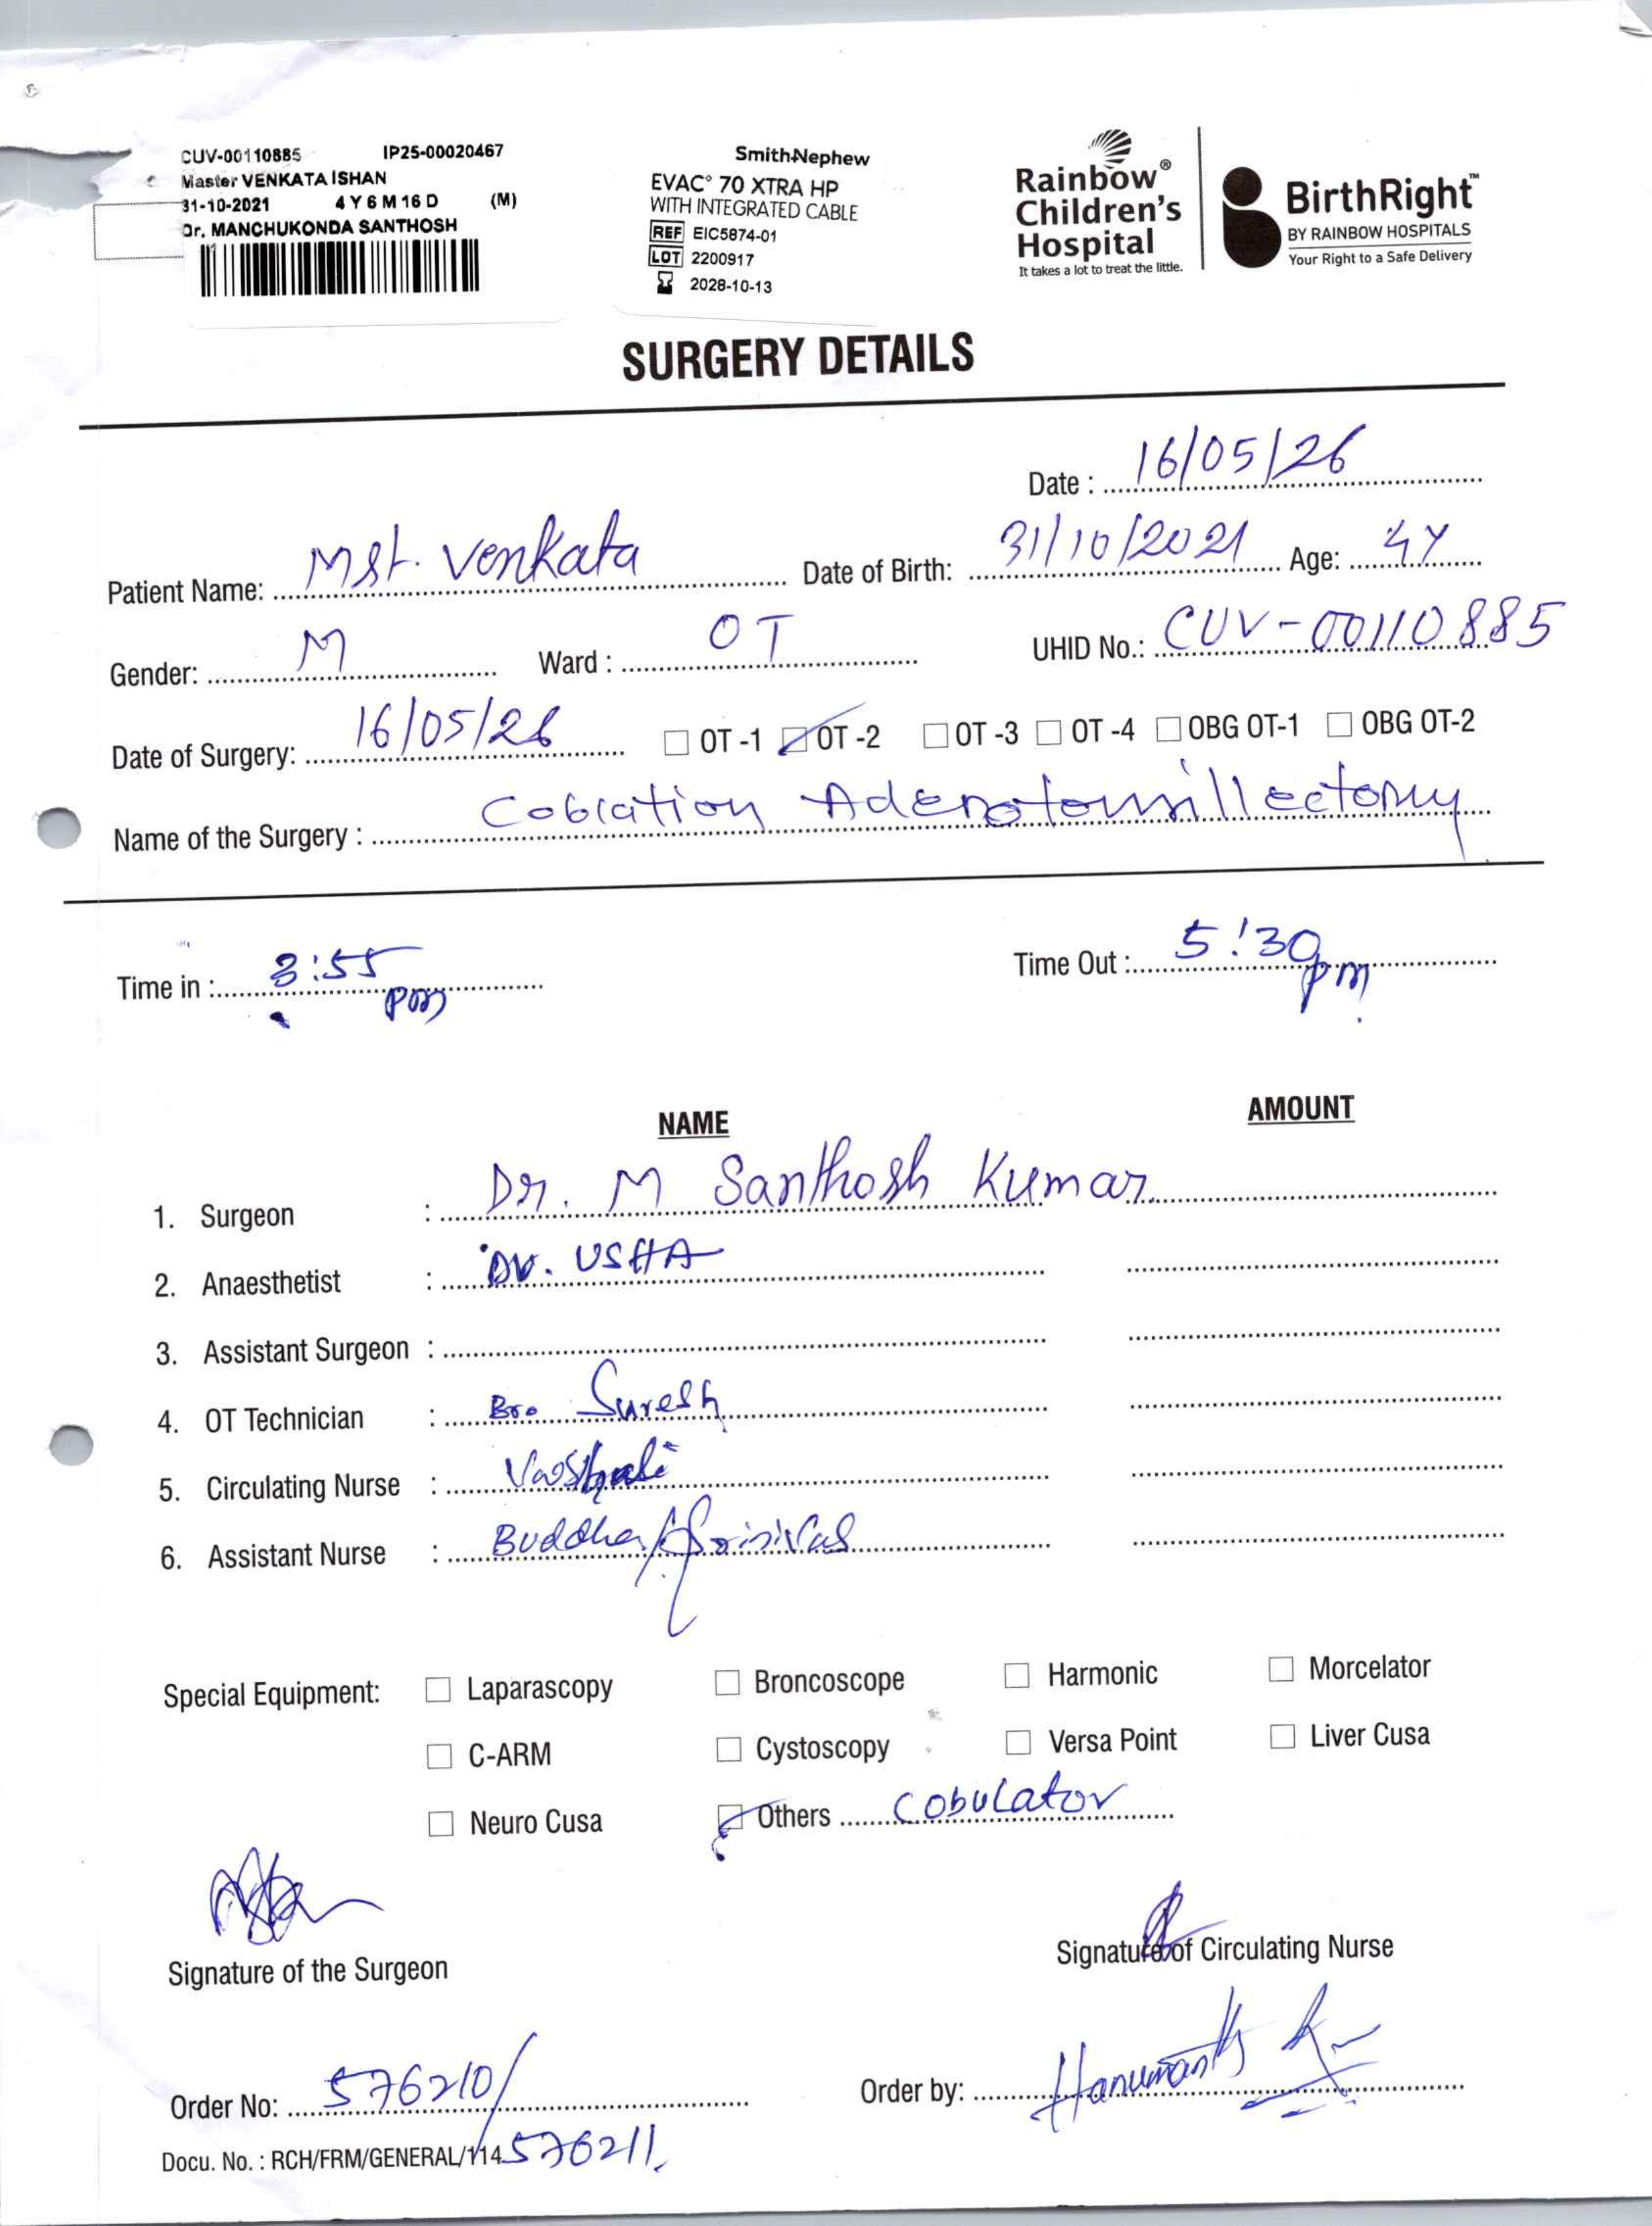 CUV-00110885 IP25-00020467
Master VENKATA ISHAN
31-10-2021 4 Y 6 M 16 D (M)
Dr. MANCHUKONDA SANTHOSH
Smith+Nephew
EVAC° 70 XTRA HP
WITH INTEGRATED CABLE
REF EIC5874-01
LOT 2200917
2028-10-13
Rainbow®
Children's
Hospital
It takes a lot to treat the little.
BirthRight™
BY RAINBOW HOSPITALS
Your Right to a Safe Delivery
SURGERY DETAILS
Date : 16/05/26
Patient Name: Mst. Venkata Date of Birth: 31/10/2021 Age: 4Y
Gender: M Ward : OT UHID No.: CUV-00110885
Date of Surgery: 16/05/26 OT -1 OT -2 OT -3 OT -4 OBG OT-1 OBG OT-2
Name of the Surgery : Coblation Adenotonsillectomy
Time in : 3:55 pm Time Out : 5:30 pm
NAME AMOUNT
1. Surgeon : Dr. M Santhosh Kumar
2. Anaesthetist : Dr. USHA
3. Assistant Surgeon :
4. OT Technician : Bro Suresh
5. Circulating Nurse : Vaishali
6. Assistant Nurse : Buddha / Srinivas
Special Equipment: Laparascopy Broncoscope Harmonic Morcelator
C-ARM Cystoscopy Versa Point Liver Cusa
Neuro Cusa Others cobulator
Signature of the Surgeon Signature of Circulating Nurse
Order No: 576210/ Order by: Hanumanth
Docu. No. : RCH/FRM/GENERAL/114 576211.